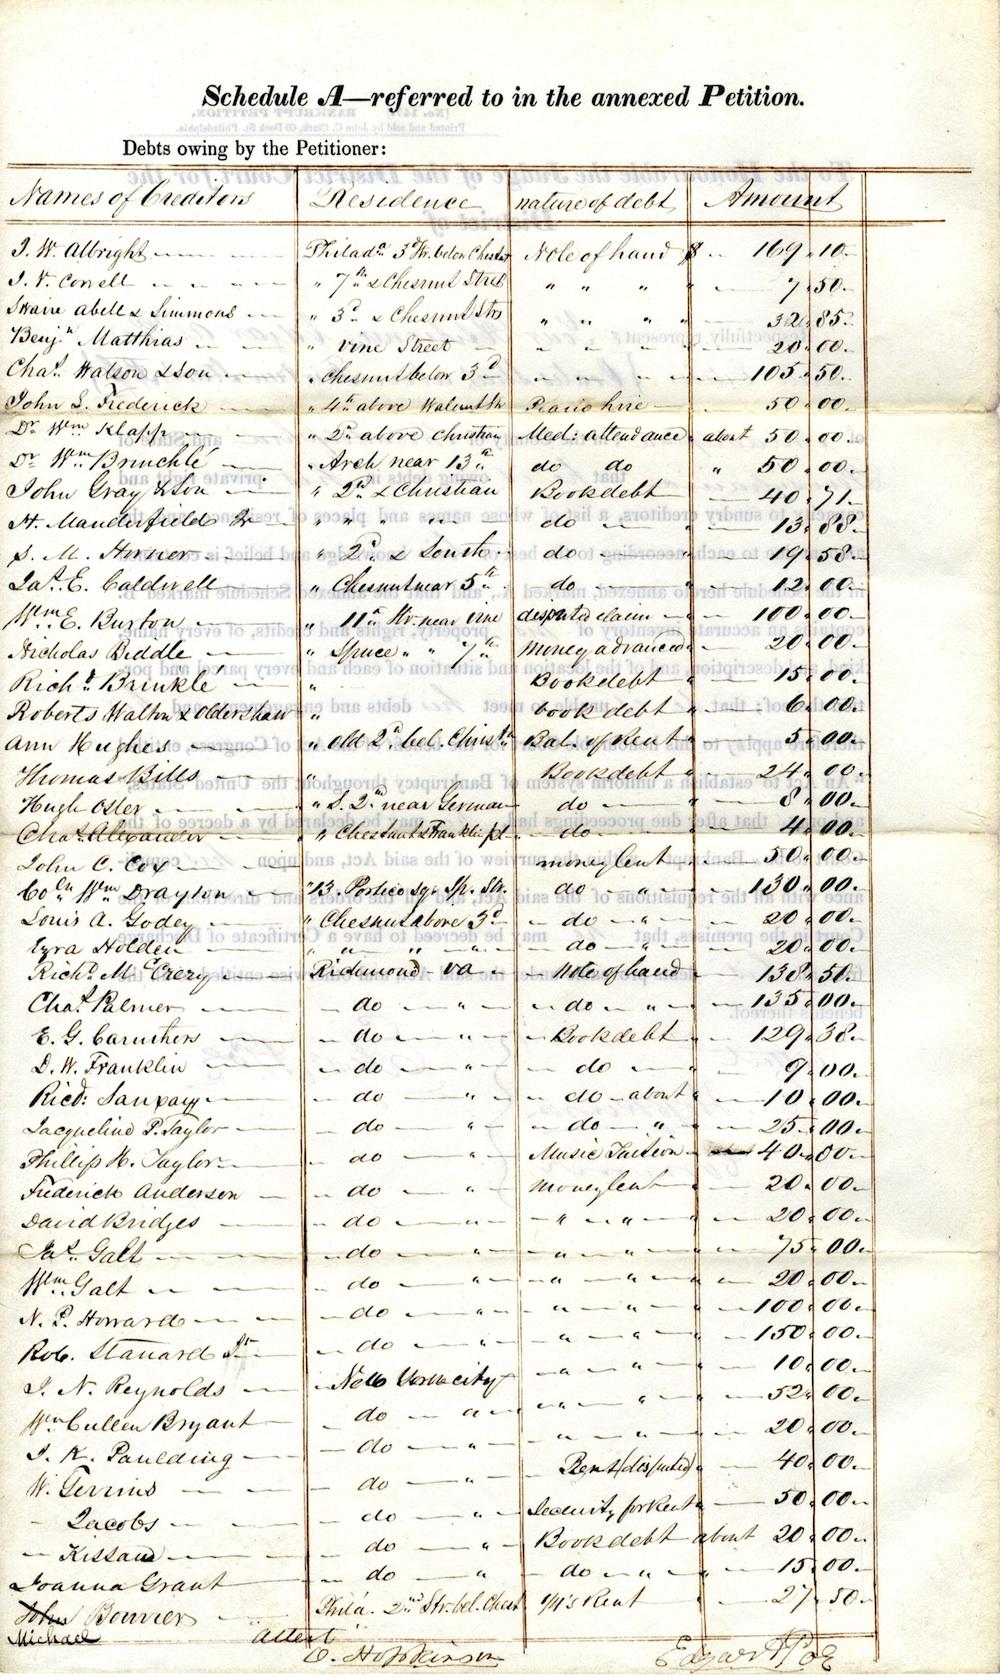 Schedule A—referred to in the annexed Petition.
Debts owing by the Petitioner:
Names of Creditors Residence nature of debt Amount
J. W. Albright Philada 3d Str. below Chesnt Note of hand $ 169 10
J. V. Cowell " 7th & Chesnut Street " " " " 7 50
Swain abell & Simmons " 3d & Chesnut Sts " " " " 32 85
Benjn Matthias " vine Street 20 00
Chas. Watson & Son " Chesnut below 3d 105 50
John S. Frederick " 4th above Walnut Str Piano hire 50 00
Dr Wm Klapp " 2d above christian Med: attendance about 50 00
Dr Wm Brinckle " Arch near 13th do do " 50 00
John Gray & Son " 2d & Christian Book debt 40 71
H. Manderfield Jr " " " do 13 88
S. M. Horner " 2d & South do 19 58
Jas. E. Caldwell " Chesnut near 5th do 12 00
Wm E. Burton " 11th Str. near vine disputed claim 100 00
Nicholas Biddle " Spruce " " 7th money advanced 20 00
Richd Brinkle " Book debt 15 00
Roberts Walton & Oldershaw " book debt 6 00
Ann Hughes " old 2d bel. Christn Bal. of Rent 5 00
Thomas Bills " Book debt 24 00
Hugh Osler " S. 2d near German do 8 00
Chas. Alexander " Chesnut & Franklin pl do 4 00
John C. Cox money lent 50 00
Coln Wm Drayton " 13. Portico sqr Sp. Str. do " 130 00
Louis A. Godey " Chesnut above 3d do " 20 00
Ezra Holden " " " " do " 20 00
Richd McCrery Richmond va note of hand 138 50
Chas. Palmer do " do " 135 00
E. G. Caruthers do " Book debt 129 38
D. W. Franklin do " do 9 00
Ricd: Sanpay do " do about 10 00
Jacqueline P. Taylor do " do " 25 00
Phillip H. Taylor do " Music Tuition 40 00
Frederick Anderson do " Money lent 20 00
David Bridges do " " " 20 00
Jas. Galt do " " " 75 00
Wm Galt do " " " 20 00
N. P. Howard do " " " 100 00
Rob. Stanard Jr do " " " 150 00
J. N. Reynolds New York city " " 10 00
Wm Cullen Bryant do " " " 52 00
J. K. Paulding do " " " 20 00
W. Gerrins do " Rent (disputed) 40 00
Jacobs do " Security for Rent 50 00
Kissam do " Book debt about 20 00
Joanna Grant do " do " 15 00
John Bouvier Phila. 2nd Str. bel. Chest Rent 27 50
Michael
Attest
O. Hopkinson Edgar A Poe